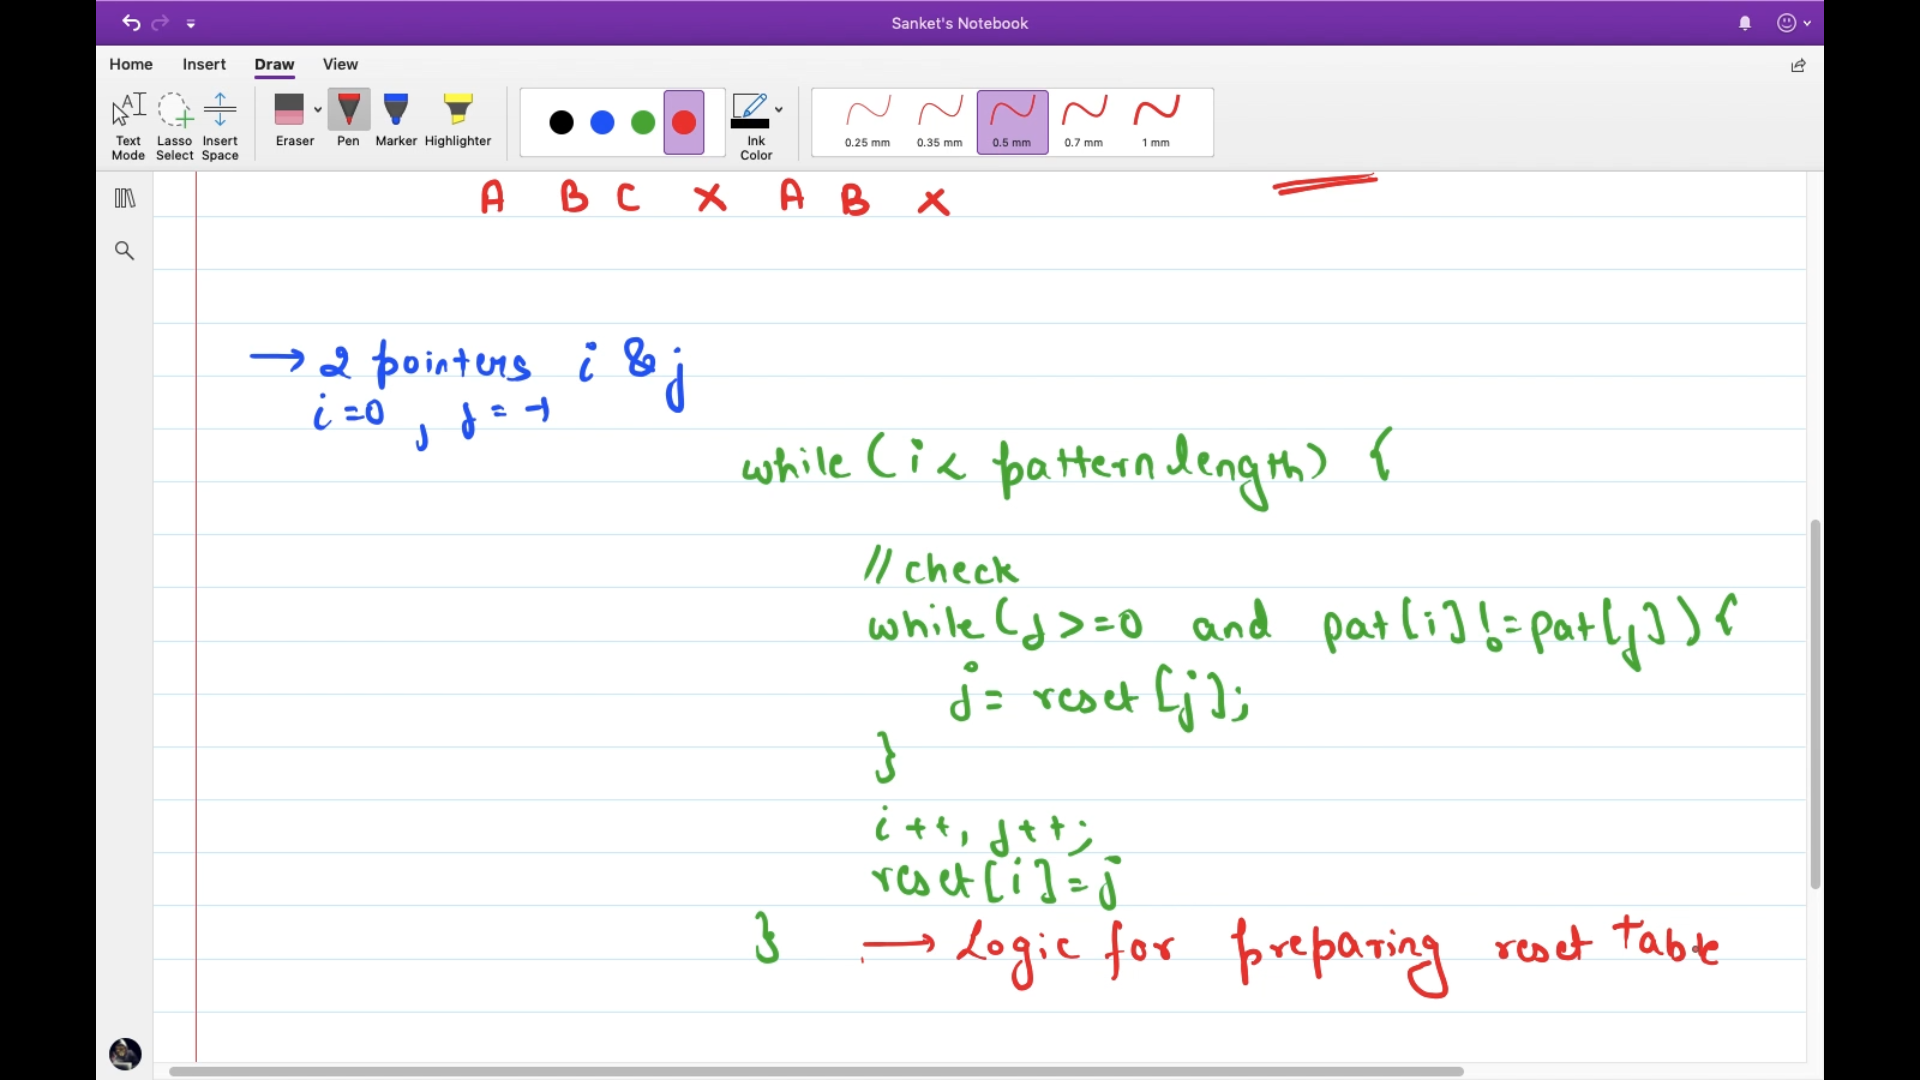 Sanket's Notebook
Home Insert Draw View
Text Mode
Lasso Select
Insert Space
Eraser
Pen
Marker
Highlighter
Ink Color
0.25 mm
0.35 mm
0.5 mm
0.7 mm
1 mm
A B C X A B X
→ 2 pointers i & j
i=0 , j = -1
while (i < pattern length) {
// check
while (j >=0 and pat[i] != pat[j]) {
j = reset [j];
}
i ++, j++;
reset [i] = j
}
→ Logic for preparing reset table